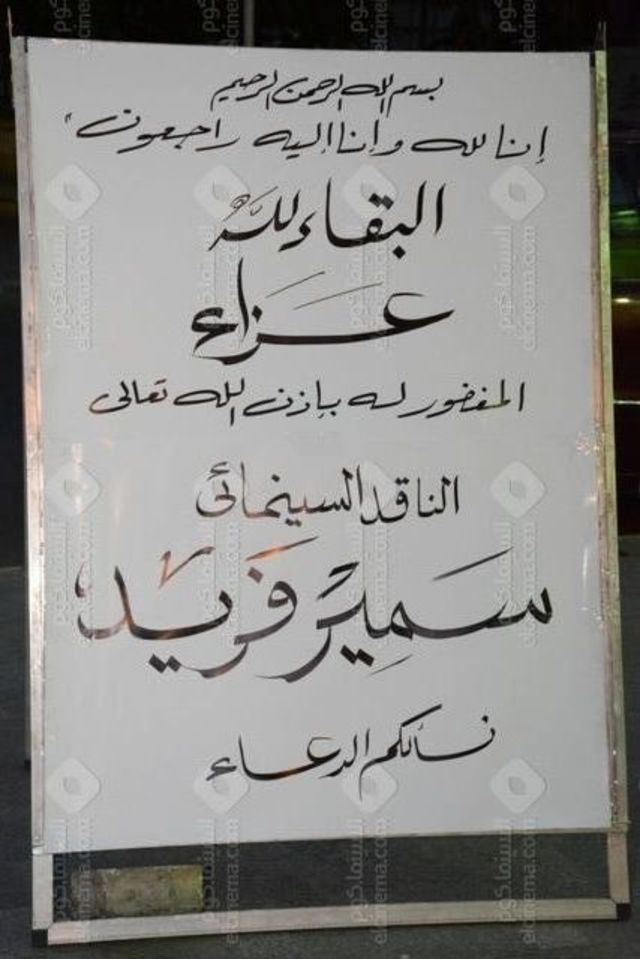 بسم الله الرحمن الرحيم
إنا لله وإنا إليه راجعون"
البقاء لله
عزاء
المغفور له بإذن الله تعالى
الناقد السينمائي
سمير فريد
نسألكم الدعاء
السينما.كوم
elcinema.com